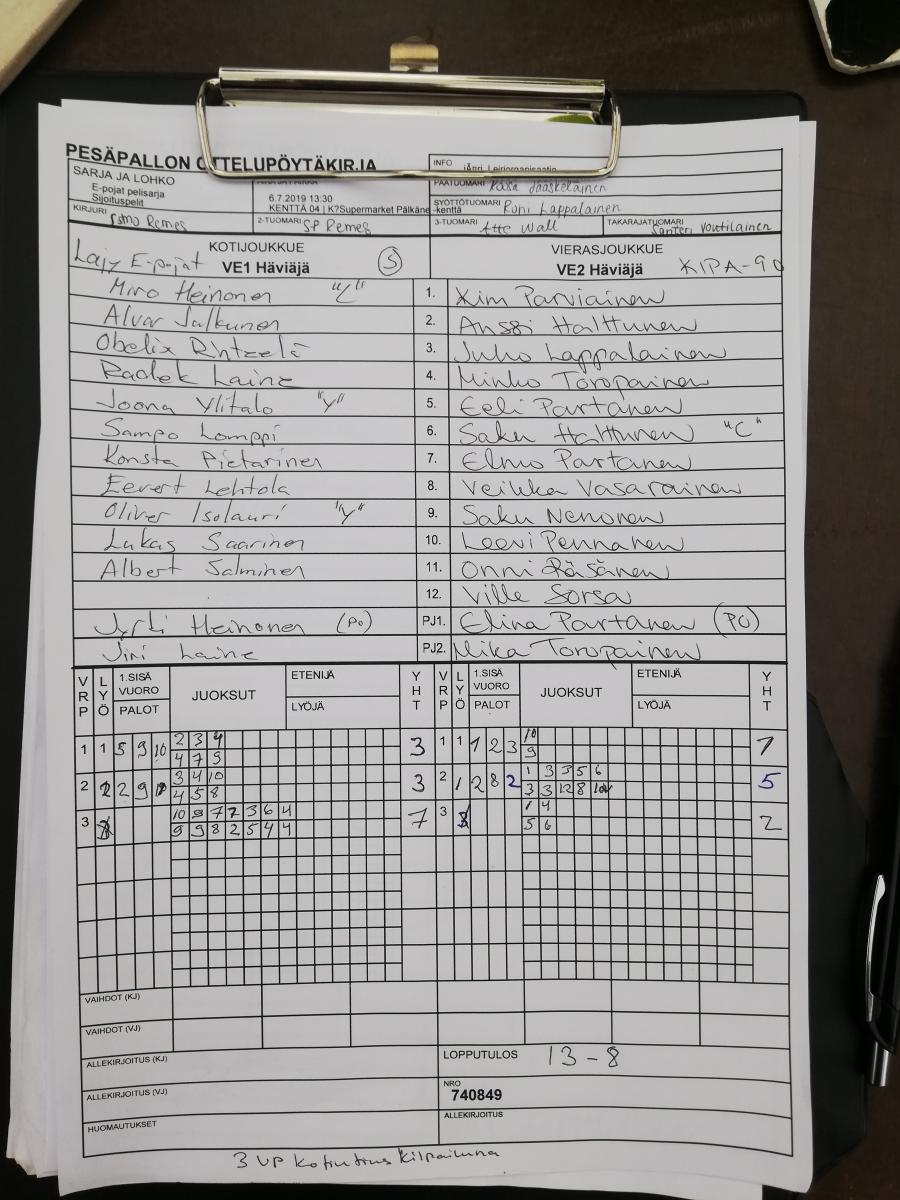 PESÄPALLON OTTELUPÖYTÄKIRJA
SARJA JA LOHKO
E-pojat pelisarja
Sijoituspelit
6.7.2019 13:30
KENTTÄ 04 | K?Supermarket Pälkäne -kenttä
INFO
PÄÄTUOMARI Kasa Jääskeläinen
SYÖTTÖTUOMARI Roni Lappalainen
KIRJURI Remes
2-TUOMARI SP Remes
3-TUOMARI Atte Wall
TAKARAJATUOMARI Santeri Voutilainen
KOTIJOUKKUE
Lajy E-pojat VE1 Häviäjä S
VIERASJOUKKUE
VE2 Häviäjä KIPA-90
Miro Heinonen "C" 1. Kim Parviainen
Alvar Jalkanen 2. Anssi Halttunen
Obelix Rintzelä 3. Juho Lappalainen
Radek Laine 4. Minko Toropainen
Joona Ylitalo "Y" 5. Eeli Partanen
Sampo Lomppi 6. Saku Halttunen "C"
Konsta Pietarinen 7. Elmo Partanen
Eevert Lehtola 8. Veikka Vasarainen
Oliver Isolauri "Y" 9. Saku Nenonen
Lukas Saarinen 10. Leevi Pennanen
Albert Salminen 11. Onni Räsänen
12. Ville Sorsa
Jyrki Heinonen (PO) PJ1. Elina Partanen (PO)
Jiri Laine PJ2. Mika Toropainen
VRP LYÖ 1.SISÄ VUORO PALOT JUOKSUT ETENIJÄ LYÖJÄ YHT VRP LYÖ 1.SISÄ VUORO PALOT JUOKSUT ETENIJÄ LYÖJÄ YHT
1 1 5 9 10 2 3 4 3 1 1 1 2 3 10
4 7 9 9
2 2 9 3 4 10 3 2 1 2 8 2 1 3 3 5 6 5
4 5 8 3 3 12 8
3 10 9 7 7 3 6 4 7 3 1 4 2
9 9 8 2 5 4 4 5 6
VAIHDOT (KJ)
VAIHDOT (VJ)
ALLEKIRJOITUS (KJ)
LOPPUTULOS 13-8
ALLEKIRJOITUS (VJ)
NRO
740849
HUOMAUTUKSET
ALLEKIRJOITUS
3 VP kotiutuskilpailuna